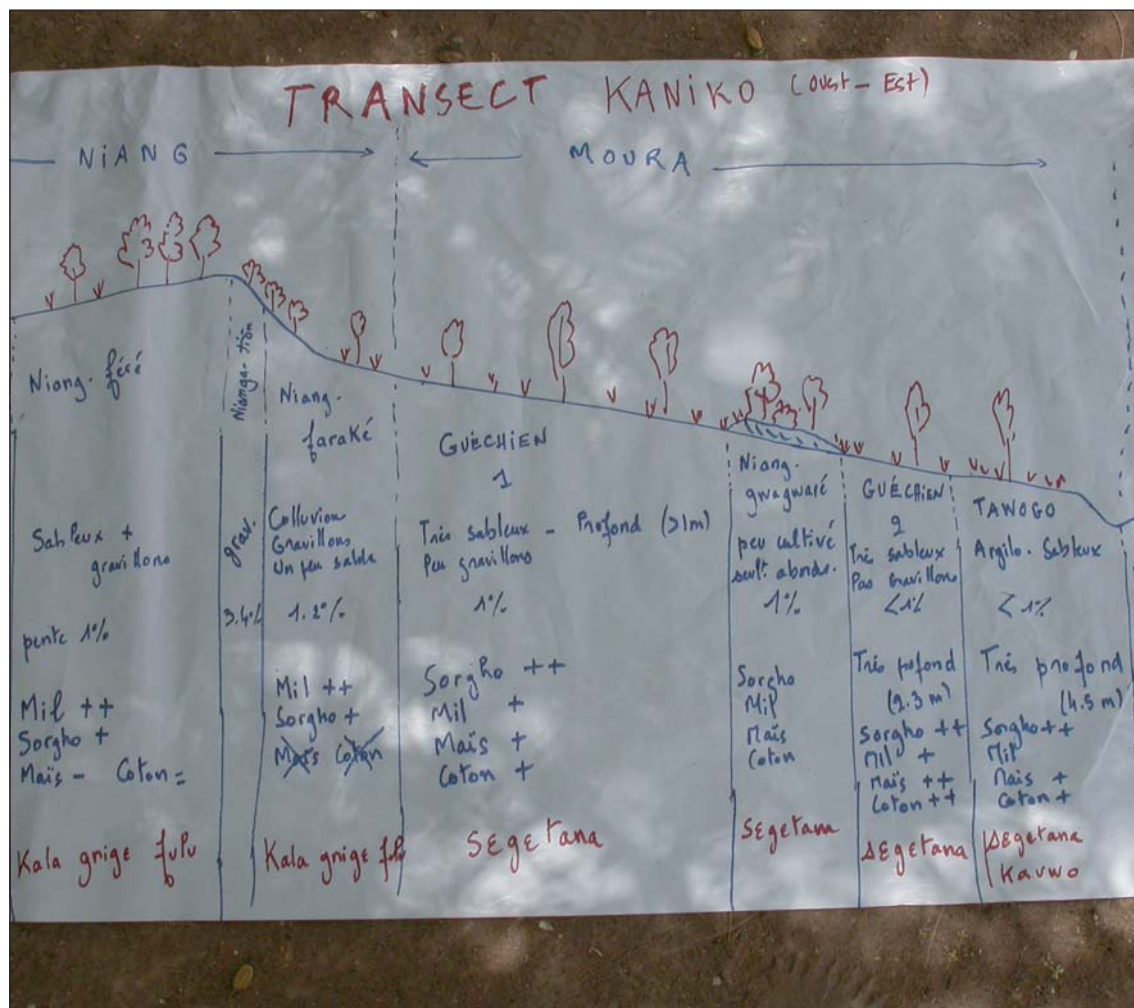 TRANSECT KANIKO (OUEST - EST)
NIANG
MOURA
Niang. féré
Sableux +
gravillons
pente 1%
Mil ++
Sorgho +
Maïs - Coton =
Kala gnige fulu
Nianga-tion
grav.
Niang.
faraké
Colluvion
Gravillons
Un peu sable
1.2%
Mil ++
Sorgho +
Maïs Coton
Kala gnige fulu
GUÉCHIEN
1
Très sableux - Profond (>1m)
Peu gravillons
1%
Sorgho ++
Mil +
Maïs +
Coton +
SEGETANA
Niang.
gwagwaré
peu cultivé
seult. abords.
1%
Sorgho
Mil
Maïs
Coton
SEGETANA
GUÉCHIEN
2
Très sableux
Pas Gravillons
<1%
Très pofond
(2.3 m)
Sorgho ++
Mil +
Maïs ++
Coton ++
SEGETANA
TAWOGO
Argilo. Sableux
<1%
Très profond
(4.5 m)
Sorgho ++
Mil
Maïs +
Coton +
SEGETANA
KAUWO